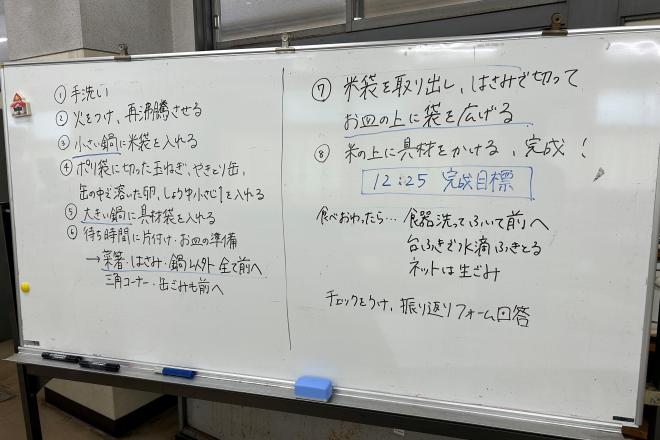 ① 手洗い
② 火をつけ、再沸騰させる
③ 小さい鍋に米袋を入れる
④ ポリ袋に切った玉ねぎ、やきとり缶、
缶の中で溶いた卵、しょうゆ小さじ1を入れる
⑤ 大きい鍋に具材袋を入れる
⑥ 待ち時間に片付け・お皿の準備
→菜箸・はさみ・鍋以外全て前へ
三角コーナー・缶ごみも前へ
⑦ 米袋を取り出し、はさみで切って
お皿の上に袋を広げる
⑧ 米の上に具材をかける、完成!
12:25 完成目標
食べおわったら… 食器洗ってふいて前へ
台ふきで水滴ふきとる
ネットは生ごみ
チェックをうけ、振り返りフォーム回答